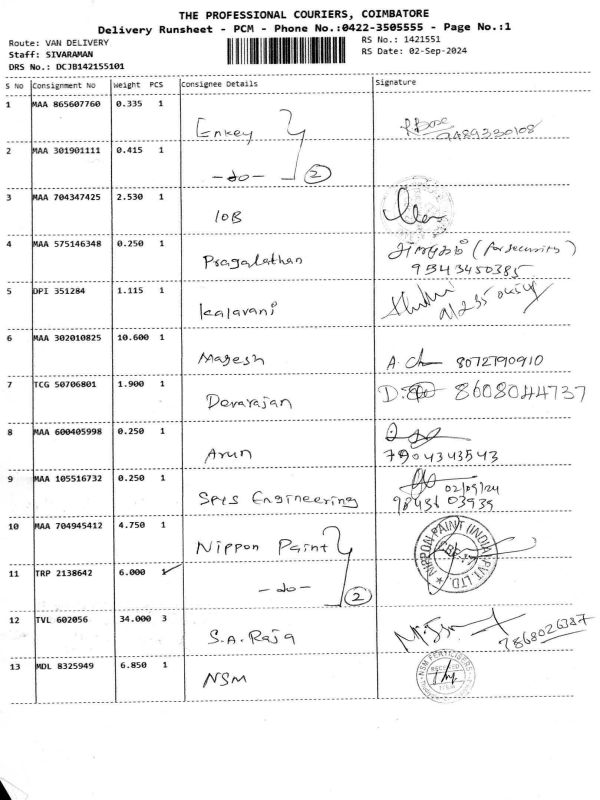 THE PROFESSIONAL COURIERS, COIMBATORE
Delivery Runsheet - PCM - Phone No.:0422-3505555 - Page No.:1
Route: VAN DELIVERY RS No.: 1421551
Staff: SIVARAMAN RS Date: 02-Sep-2024
DRS No.: DCJB142155101
S No Consignment No Weight PCS Consignee Details Signature
1 MAA 865607760 0.335 1 Enkey
R Bose 9489330108
2 MAA 301901111 0.415 1 -do- 2
3 MAA 704347425 2.530 1 IOB
4 MAA 575146348 0.250 1 Pragalathan (for security)
9543450385
5 DPI 351284 1.115 1 kalavani
6 MAA 302010825 10.600 1 Magesh A. 8072790910
7 TCG 50706801 1.900 1 Devarajan D. 8608044737
8 MAA 600405998 0.250 1 Arun
7904343543
9 MAA 105516732 0.250 1 Engineering 02/09/24
98431 03939
10 MAA 704945412 4.750 1 Nippon Paint
NIPPON PAINT (INDIA) PVT. LTD.
11 TRP 2138642 6.000 1 -do- 2
12 TVL 602056 34.000 3 S.A. Raja
7868026387
13 MDL 8325949 6.850 1 NSM
NSM FERTILISERS